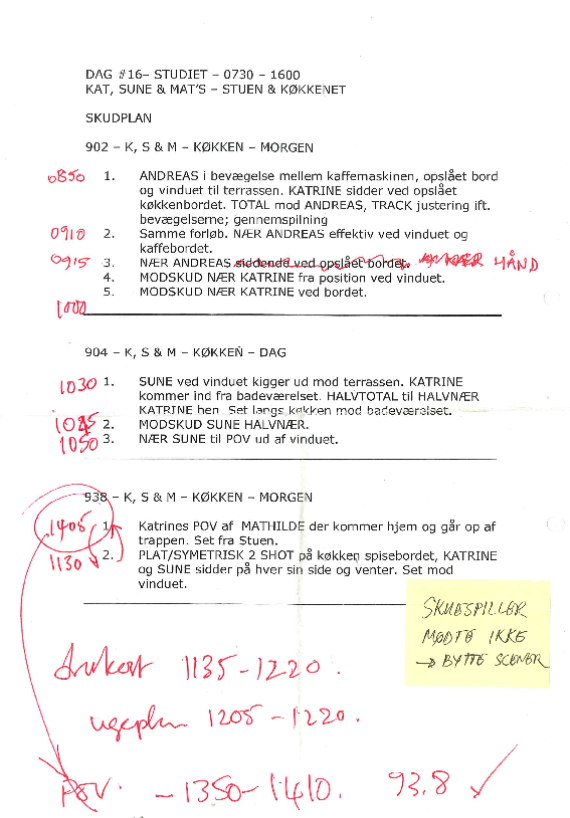 DAG #16– STUDIET – 0730 – 1600
KAT, SUNE & MAT'S – STUEN & KØKKENET
SKUDPLAN
902 – K, S & M – KØKKEN – MORGEN
0850 1. ANDREAS i bevægelse mellem kaffemaskinen, opslået bord
og vinduet til terrassen. KATRINE sidder ved opslået
køkkenbordet. TOTAL mod ANDREAS, TRACK justering ift.
bevægelserne; gennemspilning
0910 2. Samme forløb. NÆR ANDREAS effektiv ved vinduet og
kaffebordet.
0915 3. NÆR ANDREAS siddende ved opslået bordet. HÅND
4. MODSKUD NÆR KATRINE fra position ved vinduet.
5. MODSKUD NÆR KATRINE ved bordet.
1000
904 – K, S & M – KØKKEN – DAG
1030 1. SUNE ved vinduet kigger ud mod terrassen. KATRINE
kommer ind fra badeværelset. HALVTOTAL til HALVNÆR
KATRINE hen. Set langs køkken mod badeværelset.
2. MODSKUD SUNE HALVNÆR.
1050 3. NÆR SUNE til POV ud af vinduet.
938 – K, S & M – KØKKEN – MORGEN
1405 1. Katrines POV af MATHILDE der kommer hjem og går op af
trappen. Set fra Stuen.
1130 2. PLAT/SYMETRISK 2 SHOT på køkken spisebordet, KATRINE
og SUNE sidder på hver sin side og venter. Set mod
vinduet.
SKUESPILLER
MØDTE IKKE
→ BYTTE SCENER
1135–1220.
ugeplan 1205–1220.
POV. –1350–1410. 93.8 ✓